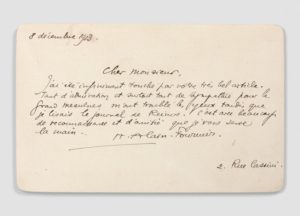 8 décembre 1913.
Cher Monsieur,
J'ai été infiniment touché par votre très bel article.
Tant d'admiration et surtout tant de sympathie pour le
grand meaulnes m'ont troublé les yeux tandis que
je lisais le journal de Reims. C'est avec beaucoup
de reconnaissance et d'amitié que je vous serre
la main.
H. Alain-Fournier
2. Rue Cassini.